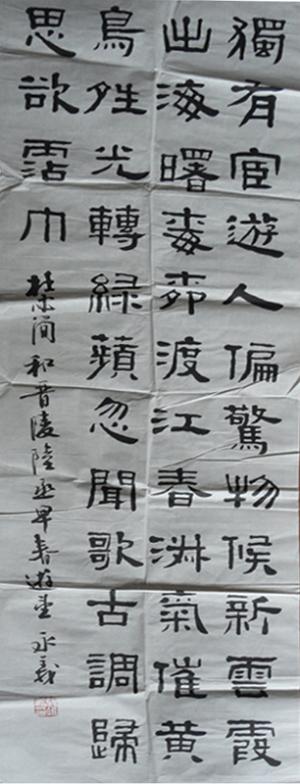 獨有宦遊人偏驚物候新雲霞
出海曙梅柳渡江春淑氣催黃
鳥晴光轉綠蘋忽聞歌古調歸
思欲霑巾
杜 和晉陵陸丞早春遊望 永義